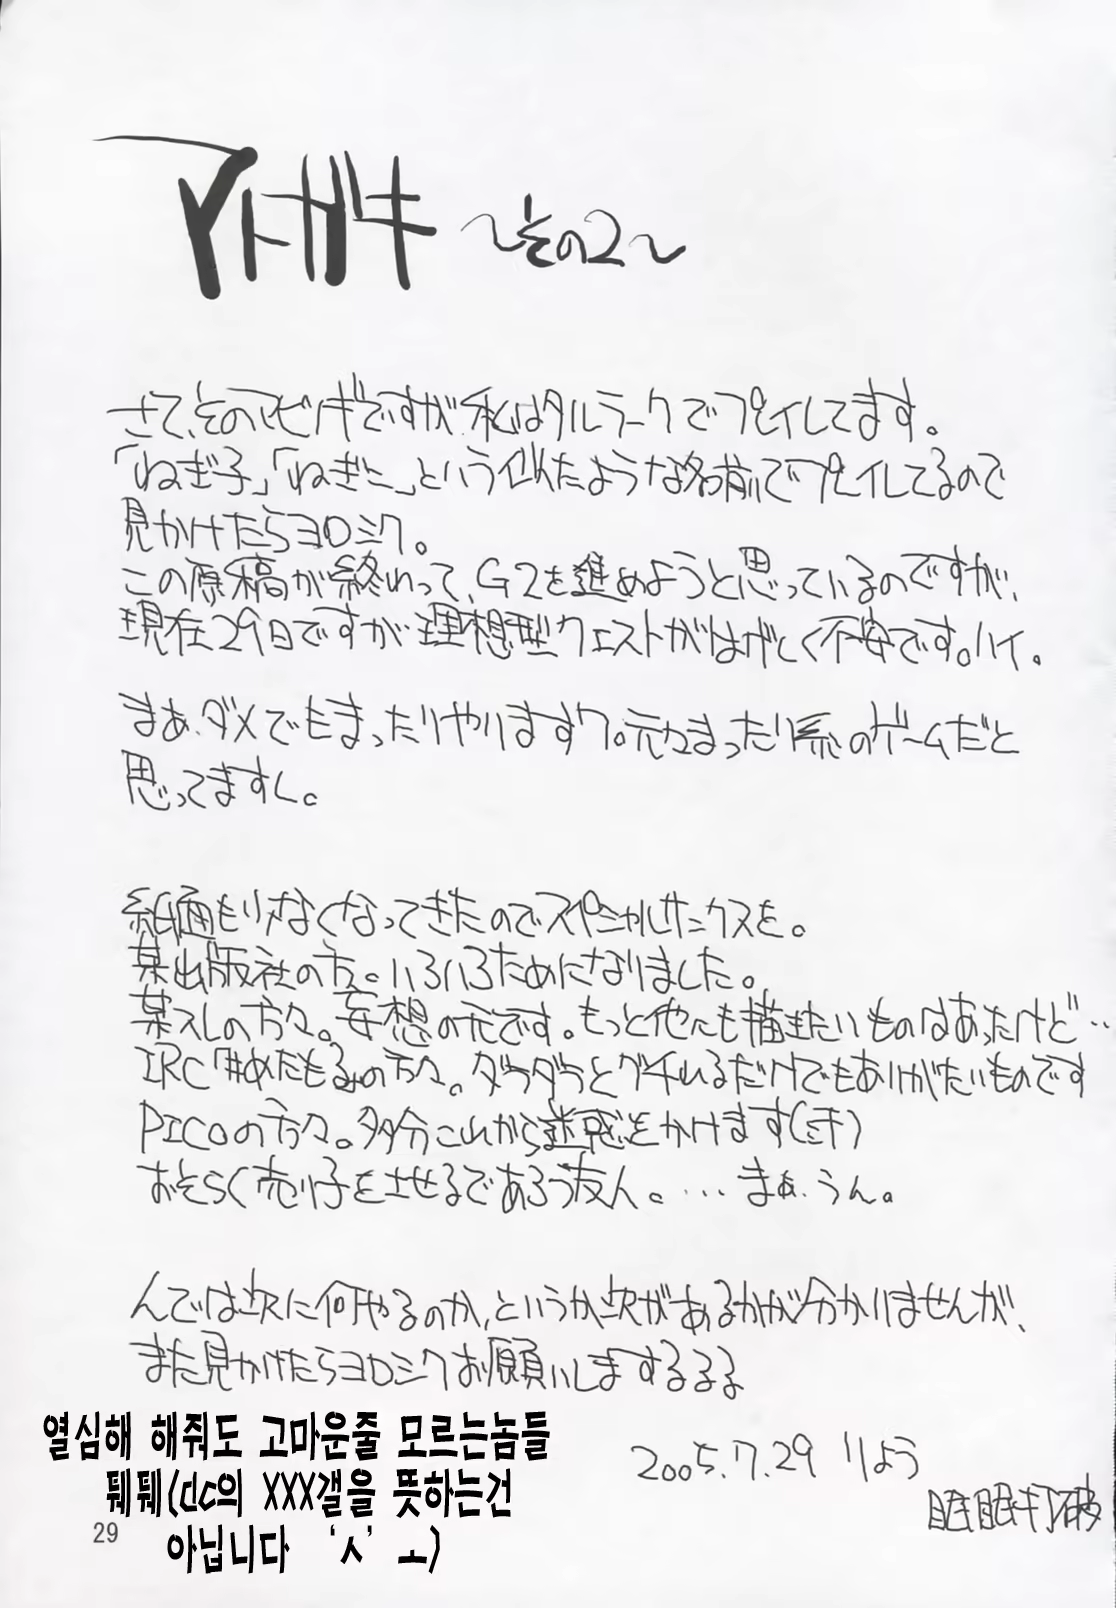 アトガキ 〜その2〜
さて、そのマビノギですが私はタルラークでプレイしてます。
「ねぎ子」「ねぎこ」という似たような名前でプレイしてるので
見かけたらヨロシク。
この原稿が終わって、G2を進めようと思っているのですが、
現在29日ですが理想型クエストがはげしく不安です。ハイ。
まぁ、ダメでもまったりやりますワ。元々まったり系のゲームだと
思ってますし。
紙面もツメなくなってきたのでスペシャルサンクスを。
某出版社の方。いろいろためになりました。
某スレの方々。妄想の元です。もっと他にも描きたいものはあったけど…
IRC「#めたもるの方々。ダラダラとグチれるだけでもありがたいものです
PICOの方々。多分これから迷惑をかけます(汗)
おそらく売り子をさせるであろう友人。…まぁ、うん。
んでは次に何やるのか、というか次があるかが分かりませんが、
また見かけたらヨロシクお願いしまするるる
2005.7.29 りょう
眠眠打破
열심해 해줘도 고마운줄 모르는놈들
퉤퉤(dc의 XXX갤을 뜻하는건
아닙니다 'ㅅ' ㅗ)
29